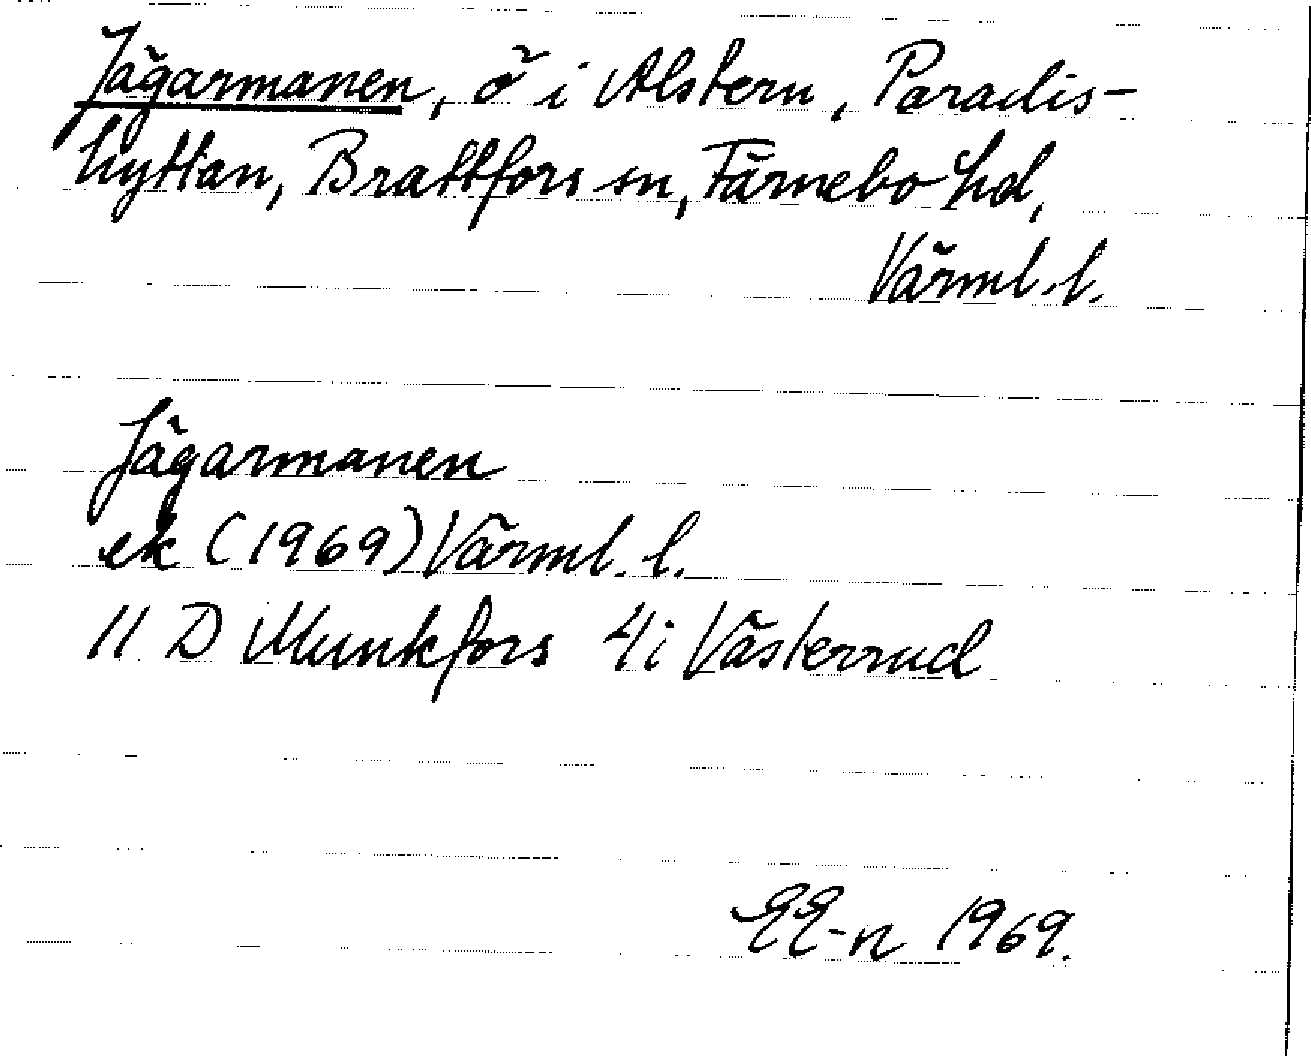 Jägarmanen, ö i Alstern, Paradis-
hyttan, Brattfors sn, Färnebo hd,
Värml. l.
Jägarmanen
ek (1969) Värml. l.
11 D Munkfors 4i Västerrud
EE-n 1969.